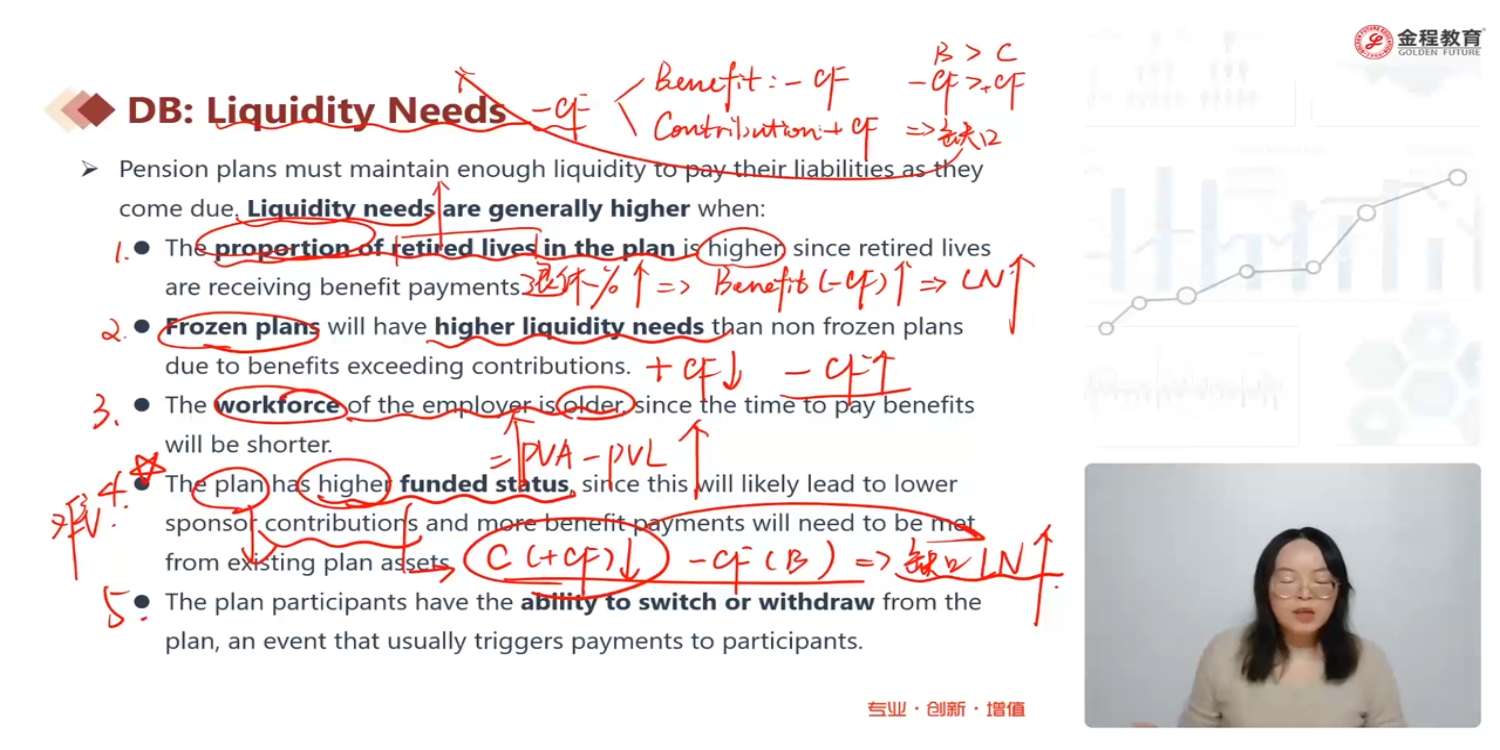 金程教育
GOLDEN FUTURE
B > C
Benefit: - CF
- CF > + CF
DB: Liquidity Needs
- CF
Contribution: + CF
=> 缺口
Pension plans must maintain enough liquidity to pay their liabilities as they
come due. Liquidity needs are generally higher when:
1.
The proportion of retired lives in the plan is higher since retired lives
are receiving benefit payments.
退休% ↑ => Benefit (-CF) ↑ => LN ↑
2.
Frozen plans will have higher liquidity needs than non frozen plans
due to benefits exceeding contributions.
+ CF ↓ - CF ↑
3.
The workforce of the employer is older, since the time to pay benefits
will be shorter.
= PVA - PVL
4.
The plan has higher funded status, since this will likely lead to lower
sponsor contributions and more benefit payments will need to be met
from existing plan assets.
C (+CF) ↓ - CF (B) => 缺口 LN ↑
5.
The plan participants have the ability to switch or withdraw from the
plan, an event that usually triggers payments to participants.
专业·创新·增值